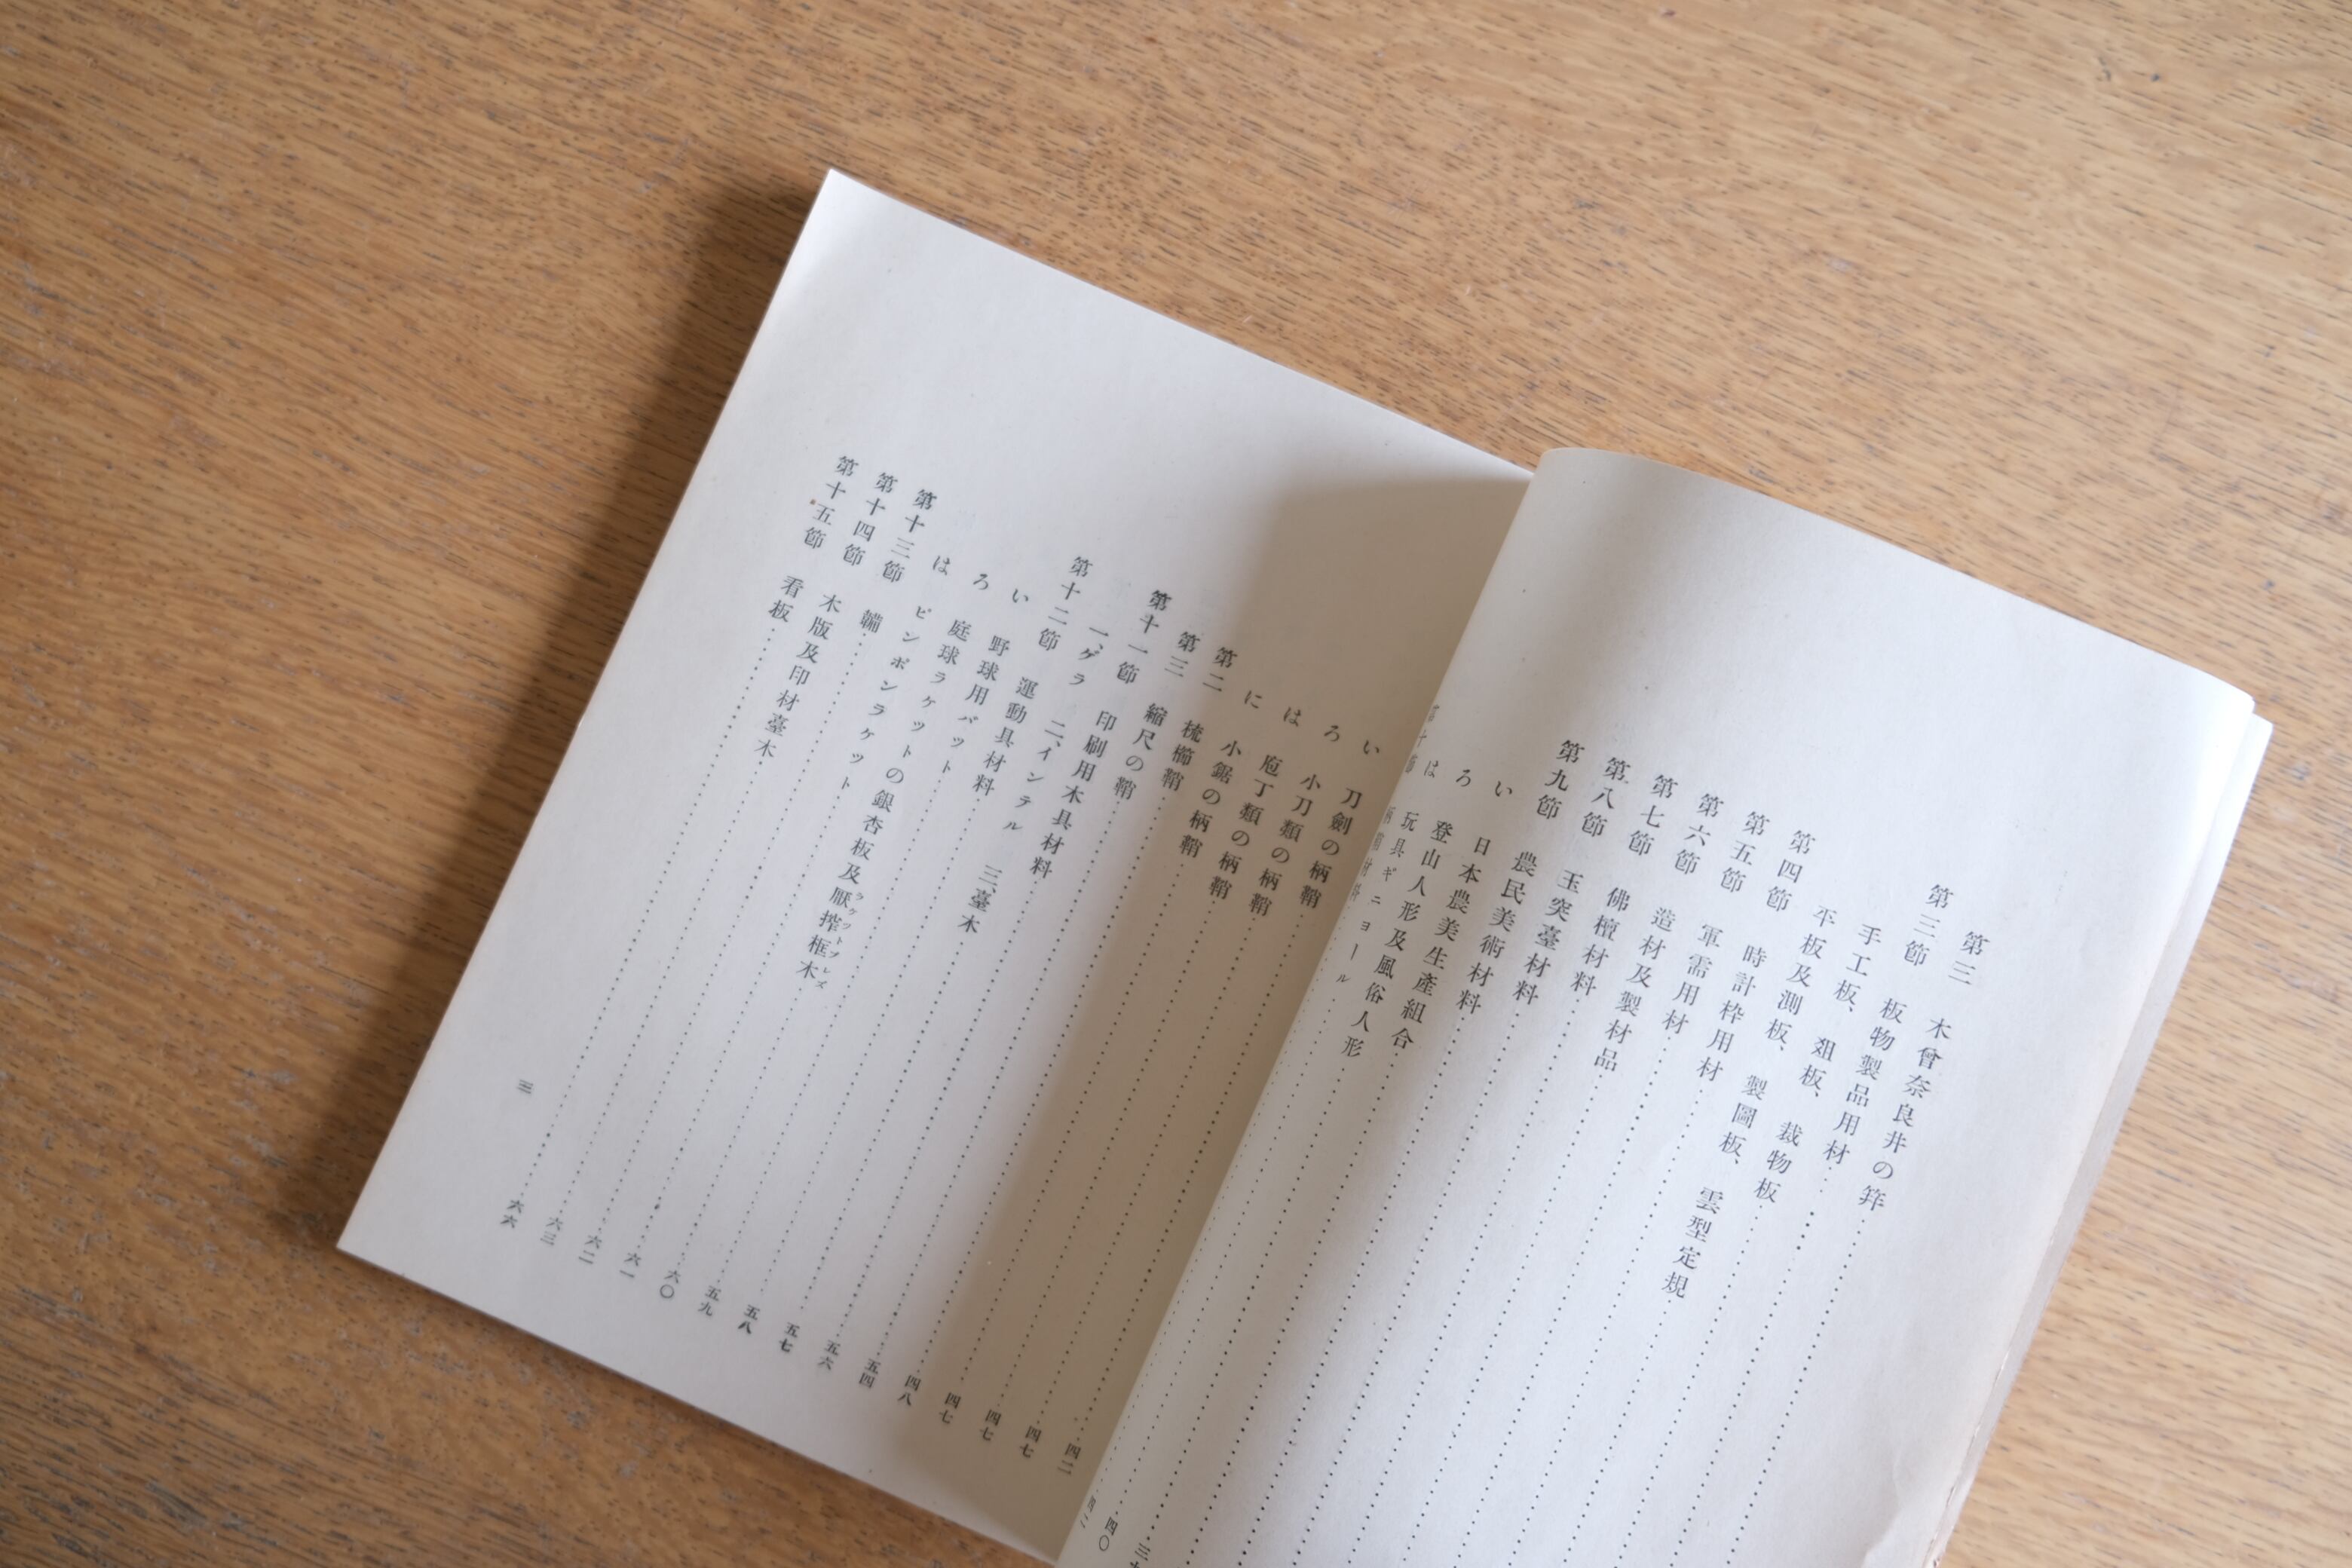 第三　木曾奈良井の笄
第三節　板物製品用材
手工板、爼板、裁物板
第四節　平板及測板、製圖板、雲型定規
第五節　時計枠用材
第六節　軍需用材
第七節　造材及製材品
第八節　佛檀材料
第九節　玉突臺材料
農民美術材料
い　日本農美生產組合
ろ　登山人形及風俗人形
は　玩具ギニョール
第十節　柄鞘材料 四二
い　刀劍の柄鞘 四二
ろ　小刀類の柄鞘 四七
は　庖丁類の柄鞘 四七
に　小鋸の柄鞘 四七
第二　梳櫛鞘 四八
第三　縮尺の鞘 五四
第十一節　印刷用木具材料 五六
一、ゲラ　二、インテル　三、臺木 五七
第十二節　運動具材料 五八
い　野球用バット 五九
ろ　庭球ラケットの銀杏板及厭搾框木 六〇
ラケットプレズ
は　ピンポンラケット 六一
第十三節　鞴 六二
第十四節　木版及印材臺木 六三
第十五節　看板 六六
三